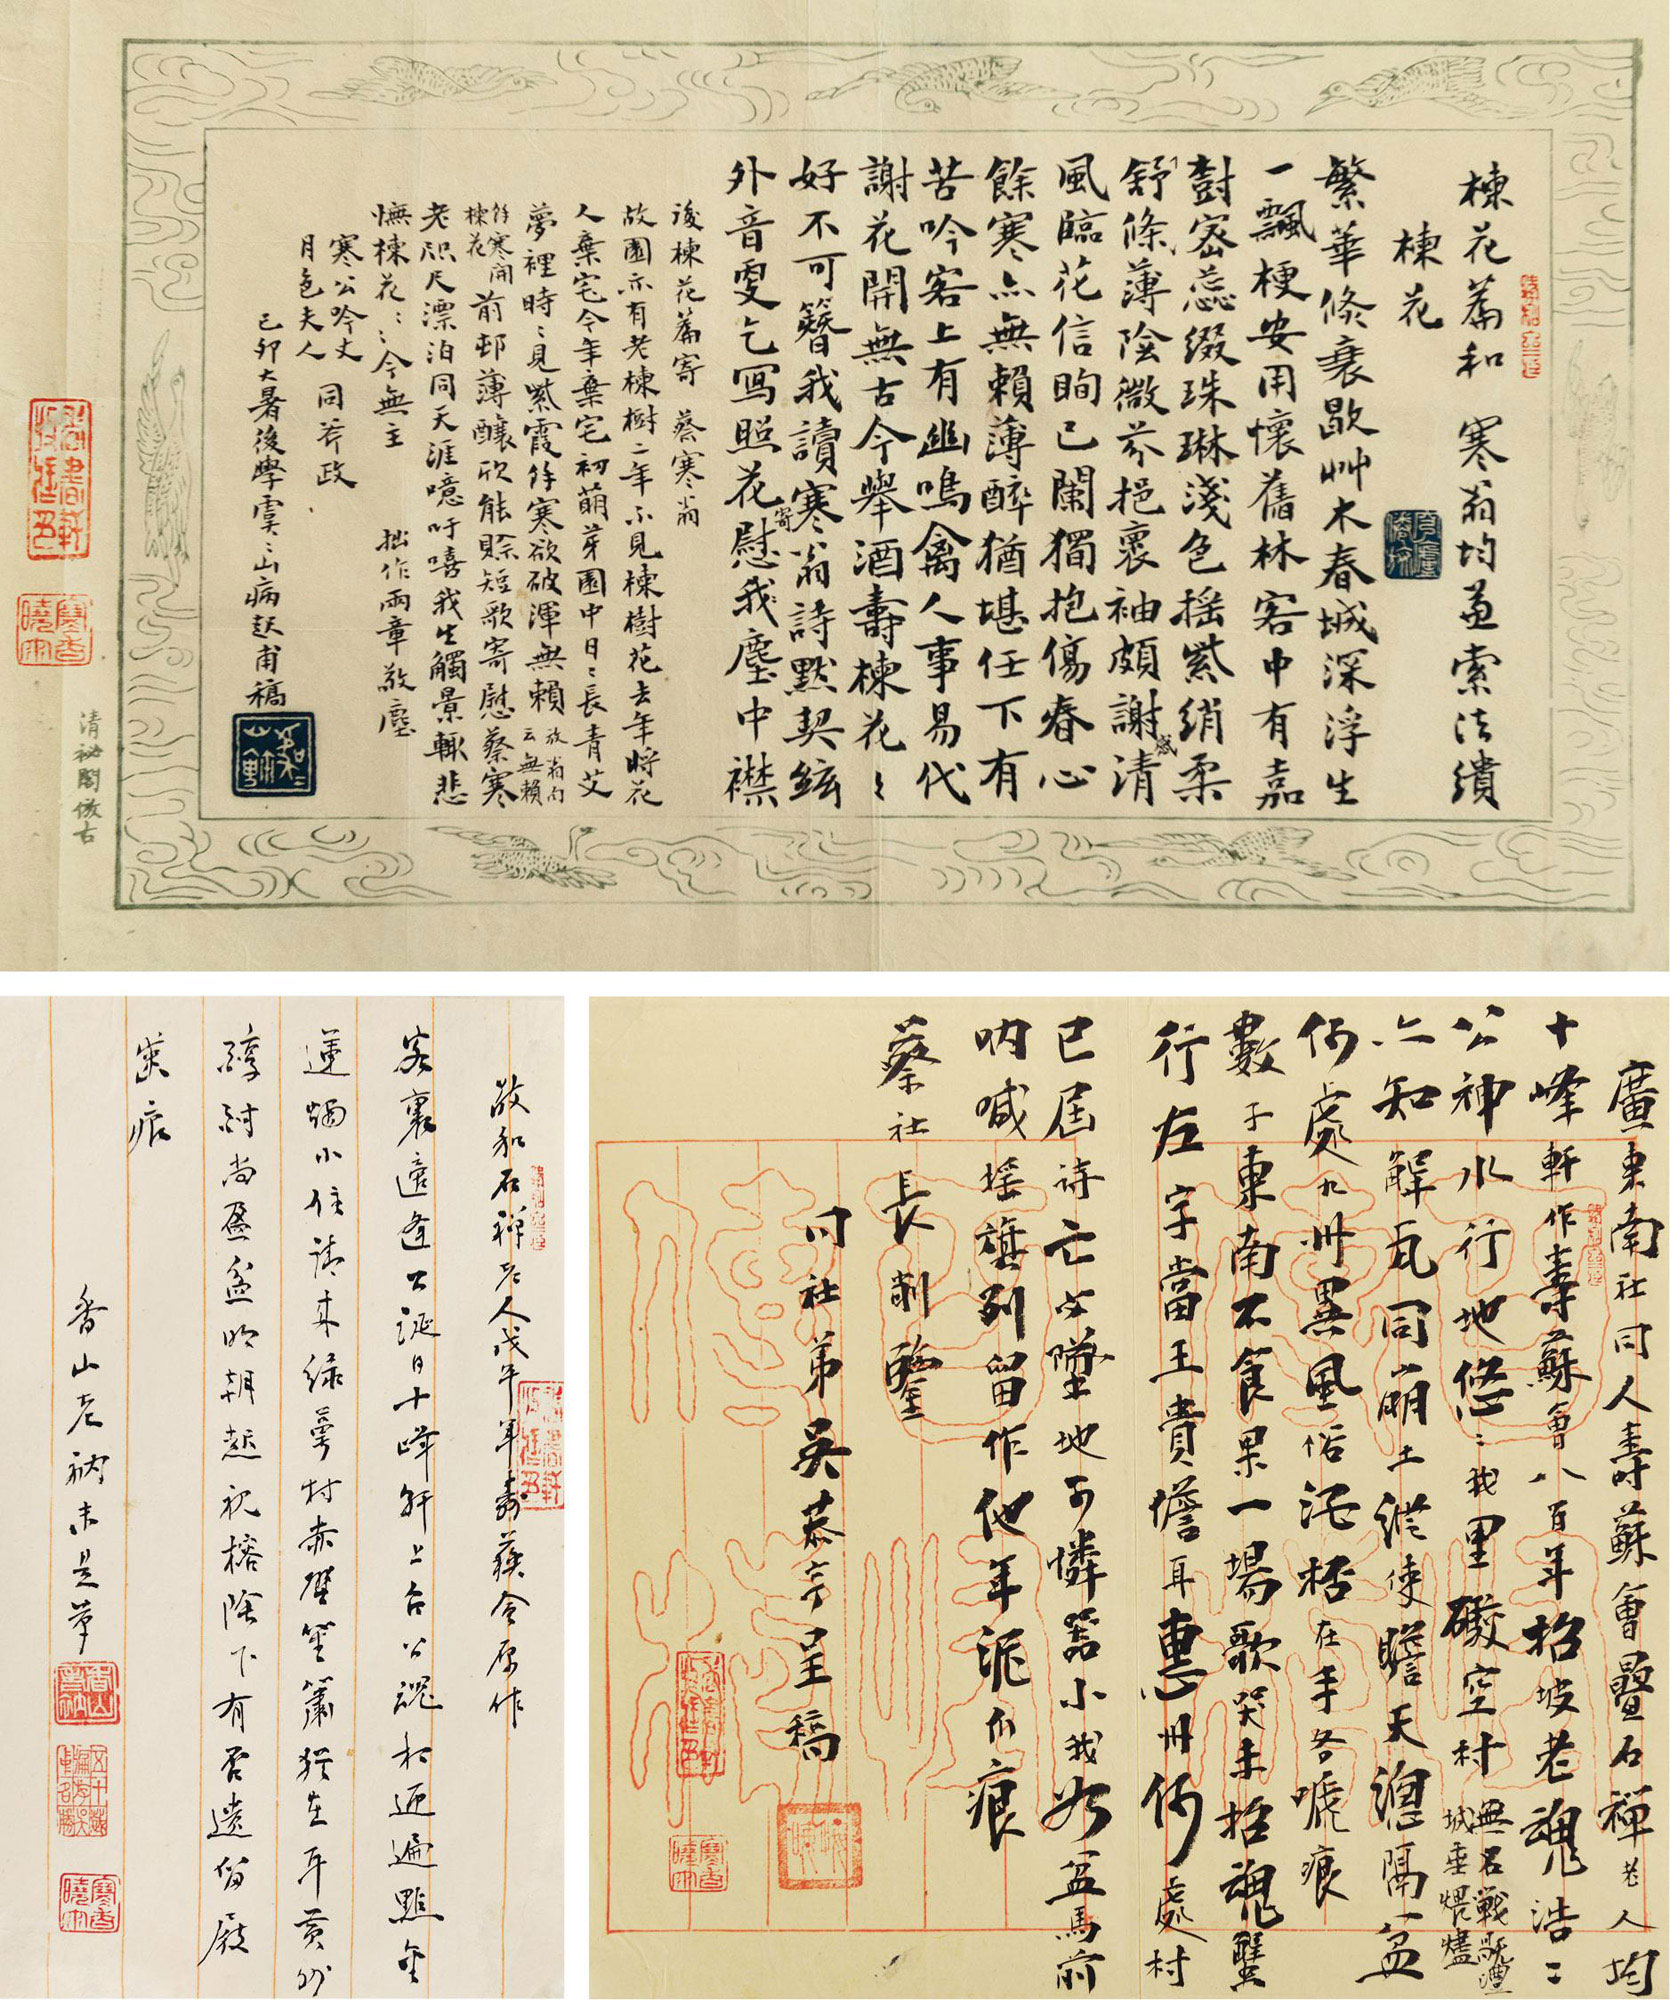 楝花篇和 寒翁均並索法繢
楝花
繁華倏衰歇艸木春城深浮生
一飄梗安用懷舊林客中有嘉
對密蕊綴珠琳淺色搖紫綃柔
舒條薄陰微芬挹裹袖頗謝清
風臨花信眴已闌獨抱傷春心
餘寒亦無賴薄醉猶堪任下有
苦吟客上有幽鳴禽人事易代
謝花開無古今舉酒壽楝花〻
好不可簪我讀寒翁詩默契絃
外音更乞寫照花寄慰我塵中襟
後楝花篇寄 蔡寒翁
故園亦有老楝樹二年不見楝樹花去年將花
人棄宅今年棄宅初萌芽園中日〻長青艾
夢裡時〻見紫霞餘寒欲破渾無賴放翁句云無賴
餘寒開楝花前邨薄釀欣能賒短歌寄慰蔡寒
老咫尺漂泊同天涯噫吁嘻我生觸景輒悲
憮楝花〻今無主 拙作兩章敬塵
寒公吟丈
月色夫人 同斧政
己卯大暑後學 山病起甫稿
清祕閣倣古
廣東南社同人壽蘇會疊石禪老人均
十峰軒作壽蘇會八百年招坡老魂浩〻
公神水行地悠〻我里礮空村無名戰
城垂煨燼
亦知解瓦同崩土縱使瞻天隔一盆
何處九州異風俗 在手各 痕
數子東南不食果一場歌哭未招魂蟹
行左字當王貴 耳惠州何處村
已屆詩亡 墮地可憐器小我如盆馬前
吶喊搖旗列留作他年泥爪痕
蔡社長 削鑒
同社弟吳 呈稿
敬和石禪老人戊午年壽蘇會原作
客裏適逢公誕日十峰軒上合公魂相 遍點金
蓮燭小住請來綠夢村赤壁笙簫猶在耳黃州
醇酎尚盈盆明朝 祝榕陰下有否遺留屐
齒痕
香山老衲未是草